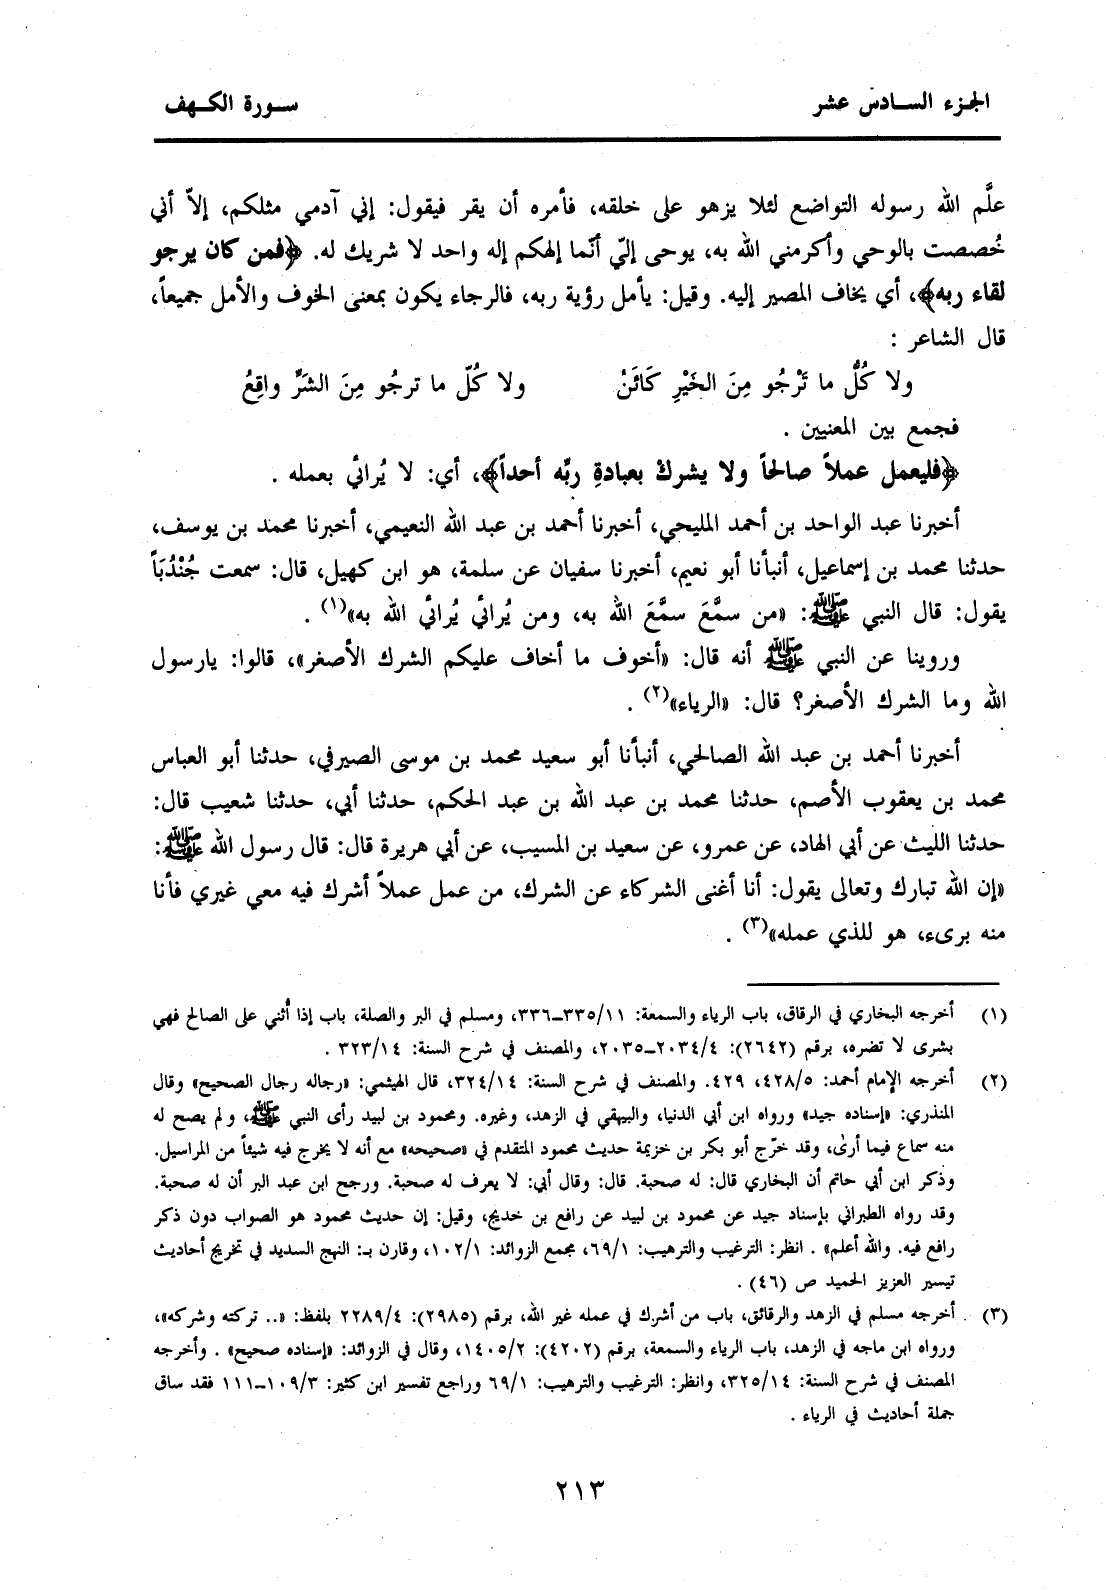 الجزء السادس عشر
سورة الكهف
علَّم الله رسوله التواضع لئلا يزهو على خلقه، فأمره أن يقر فيقول: إني آدمي مثلكم، إلاّ أني
خُصصت بالوحي وأكرمني الله به، يوحى إليّ أنّما إلهكم إله واحد لا شريك له. ﴿فمن كان يرجو
لقاء ربه﴾، أي يخاف المصير إليه. وقيل: يأمل رؤية ربه، فالرجاء يكون بمعنى الخوف والأمل جميعاً،
قال الشاعر :
ولا كُلُّ ما تَرْجُو مِنَ الخَيْرِ كَائَنْ ولا كُلّ ما ترجُو مِنَ الشَرِّ واقِعُ
فجمع بين المعنيين .
﴿فليعمل عملاً صالحاً ولا يشركْ بعبادةِ ربِّه أحداً﴾، أي: لا يُرائي بعمله .
أخبرنا عبد الواحد بن أحمد المليحي، أخبرنا أحمد بن عبد الله النعيمي، أخبرنا محمد بن يوسف،
حدثنا محمد بن إسماعيل، أنبأنا أبو نعيم، أخبرنا سفيان عن سلمة، هو ابن كهيل، قال: سمعت جُنْدُبَاً
يقول: قال النبي ﷺ: «من سمَّعَ سمَّعَ الله به، ومن يُرائي يُرائي الله به»(١) .
وروينا عن النبي ﷺ أنه قال: «أخوف ما أخاف عليكم الشرك الأصغر»، قالوا: يارسول
الله وما الشرك الأصغر؟ قال: «الرياء»(٢) .
أخبرنا أحمد بن عبد الله الصالحي، أنبأنا أبو سعيد محمد بن موسى الصيرفي، حدثنا أبو العباس
محمد بن يعقوب الأصم، حدثنا محمد بن عبد الله بن عبد الحكم، حدثنا أبي، حدثنا شعيب قال:
حدثنا الليث عن أبي الهاد، عن عمرو، عن سعيد بن المسيب، عن أبي هريرة قال: قال رسول الله ﷺ:
«إن الله تبارك وتعالى يقول: أنا أغنى الشركاء عن الشرك، من عمل عملاً أشرك فيه معي غيري فأنا
منه بريء، هو للذي عمله»(٣) .
(١) أخرجه البخاري في الرقاق، باب الرياء والسمعة: ٣٣٥/١١ــ٣٣٦، ومسلم في البر والصلة، باب إذا أُثني على الصالح فهي
بشرى لا تضره، برقم (٢٦٤٢): ٢٠٣٤/٤ــ٢٠٣٥، والمصنف في شرح السنة: ٣٢٣/١٤ .
(٢) أخرجه الإمام أحمد: ٤٢٨/٥، ٤٢٩. والمصنف في شرح السنة: ٣٢٤/١٤، قال الهيثمي: «رجاله رجال الصحيح» وقال
المنذري: «إسناده جيد» ورواه ابن أبي الدنيا، والبيهقي في الزهد، وغيره. ومحمود بن لبيد رأى النبي ﷺ، ولم يصح له
منه سماع فيما أرى، وقد خرّج أبو بكر بن خزيمة حديث محمود المتقدم في «صحيحه» مع أنه لا يخرج فيه شيئاً من المراسيل.
وذكر ابن أبي حاتم أن البخاري قال: له صحبة. قال: وقال أبي: لا يعرف له صحبة. ورجح ابن عبد البر أن له صحبة.
وقد رواه الطبراني بإسناد جيد عن محمود بن لبيد عن رافع بن خديج، وقيل: إن حديث محمود هو الصواب دون ذكر
رافع فيه. والله أعلم» . انظر: الترغيب والترهيب: ٦٩/١، مجمع الزوائد: ١٠٢/١، وقارن بـ: النهج السديد في تخريج أحاديث
تيسير العزيز الحميد ص (٤٦) .
(٣) أخرجه مسلم في الزهد والرقائق، باب من أشرك في عمله غير الله، برقم (٢٩٨٥): ٢٢٨٩/٤ بلفظ: «.. تركته وشركه»،
ورواه ابن ماجه في الزهد، باب الرياء والسمعة، برقم (٤٢٠٢): ١٤٠٥/٢، وقال في الزوائد: «إسناده صحيح» . وأخرجه
المصنف في شرح السنة: ٣٢٥/١٤، وانظر: الترغيب والترهيب: ٦٩/١ وراجع تفسير ابن كثير: ١٠٩/٣ــ١١١ فقد ساق
جملة أحاديث في الرياء .
٢١٣